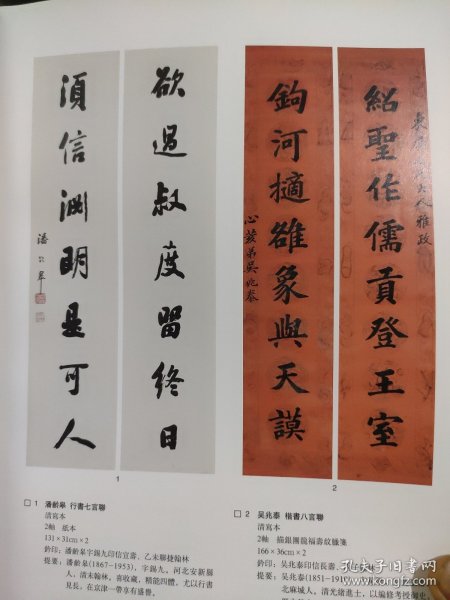 欲過叔度留終日
須信淵明是可人
潘齡皋
紹聖作儒貢登王室
鉤河擿雒象與天謨
心荄弟吳兆泰
1
2
□ 1 潘齡皋 行書七言聯
清寫本
2軸 紙本
131×31cm×2
鈐印：潘齡皋字錫九印信宜壽、乙未聯捷翰林
提要：潘齡皋(1867-1953)，字錫九，河北安新縣
人，清末翰林，喜收藏，精館四體，尤以行書
見長，在京津一帶享有盛譽。
□ 2 吳兆泰 楷書八言聯
清寫本
2軸 描銀團龍福壽紋臘箋
166×36cm×2
鈐印：吳兆泰印信長壽
提要：吳兆泰(1851-191
北麻城人，清光緒進士，以編修考授御史
孔夫子旧书网